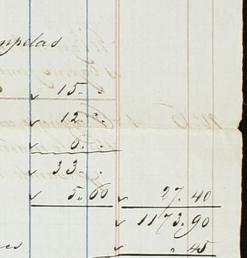 mpelas
✓ 15 "
✓ 12 "
✓ 6 "
✓ 33 "
✓ 5.60 ✓ 27.40
✓ 1173.90
✓ " 45
es